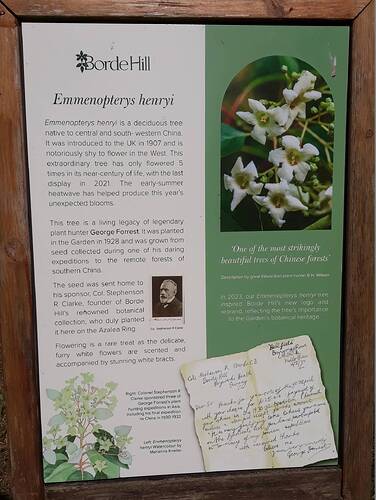 Borde Hill
Emmenopterys henryi
Emmenopterys henryi is a deciduous tree
native to central and south- western China.
It was introduced to the UK in 1907 and is
notoriously shy to flower in the West. This
extraordinary tree has only flowered 5
times in its near-century of life, with the last
display in 2021. The early-summer
heatwave has helped produce this year's
unexpected blooms.
This tree is a living legacy of legendary
plant hunter George Forrest. It was planted
in the Garden in 1928 and was grown from
seed collected during one of his daring
expeditions to the remote forests of
southern China.
The seed was sent home to
his sponsor, Col. Stephenson
R Clarke, founder of Borde
Hill's renowned botanical
collection, who duly planted
it here on the Azalea Ring.
Col. Stephenson R Clarke
Flowering is a rare treat as the delicate,
furry white flowers are scented and
accompanied by stunning white bracts.
Right: Colonel Stephenson R
Clarke sponsored three of
George Forrest's plant
hunting expeditions in Asia,
including his final expedition
to China in 1930-1932
Left: Emmenopterys
henryi Watercolour by
Marianne
'One of the most strikingly
beautiful trees of Chinese forests'
Description by great Edwardian plant hunter E H. Wilson
In 2023, our Emmenopterys henryi tree
inspired Borde Hill's new logo and
rebrand, reflecting the tree's importance
to the Garden's botanical heritage.
Col. Stephenson R.
Borde Hill
George Forrest